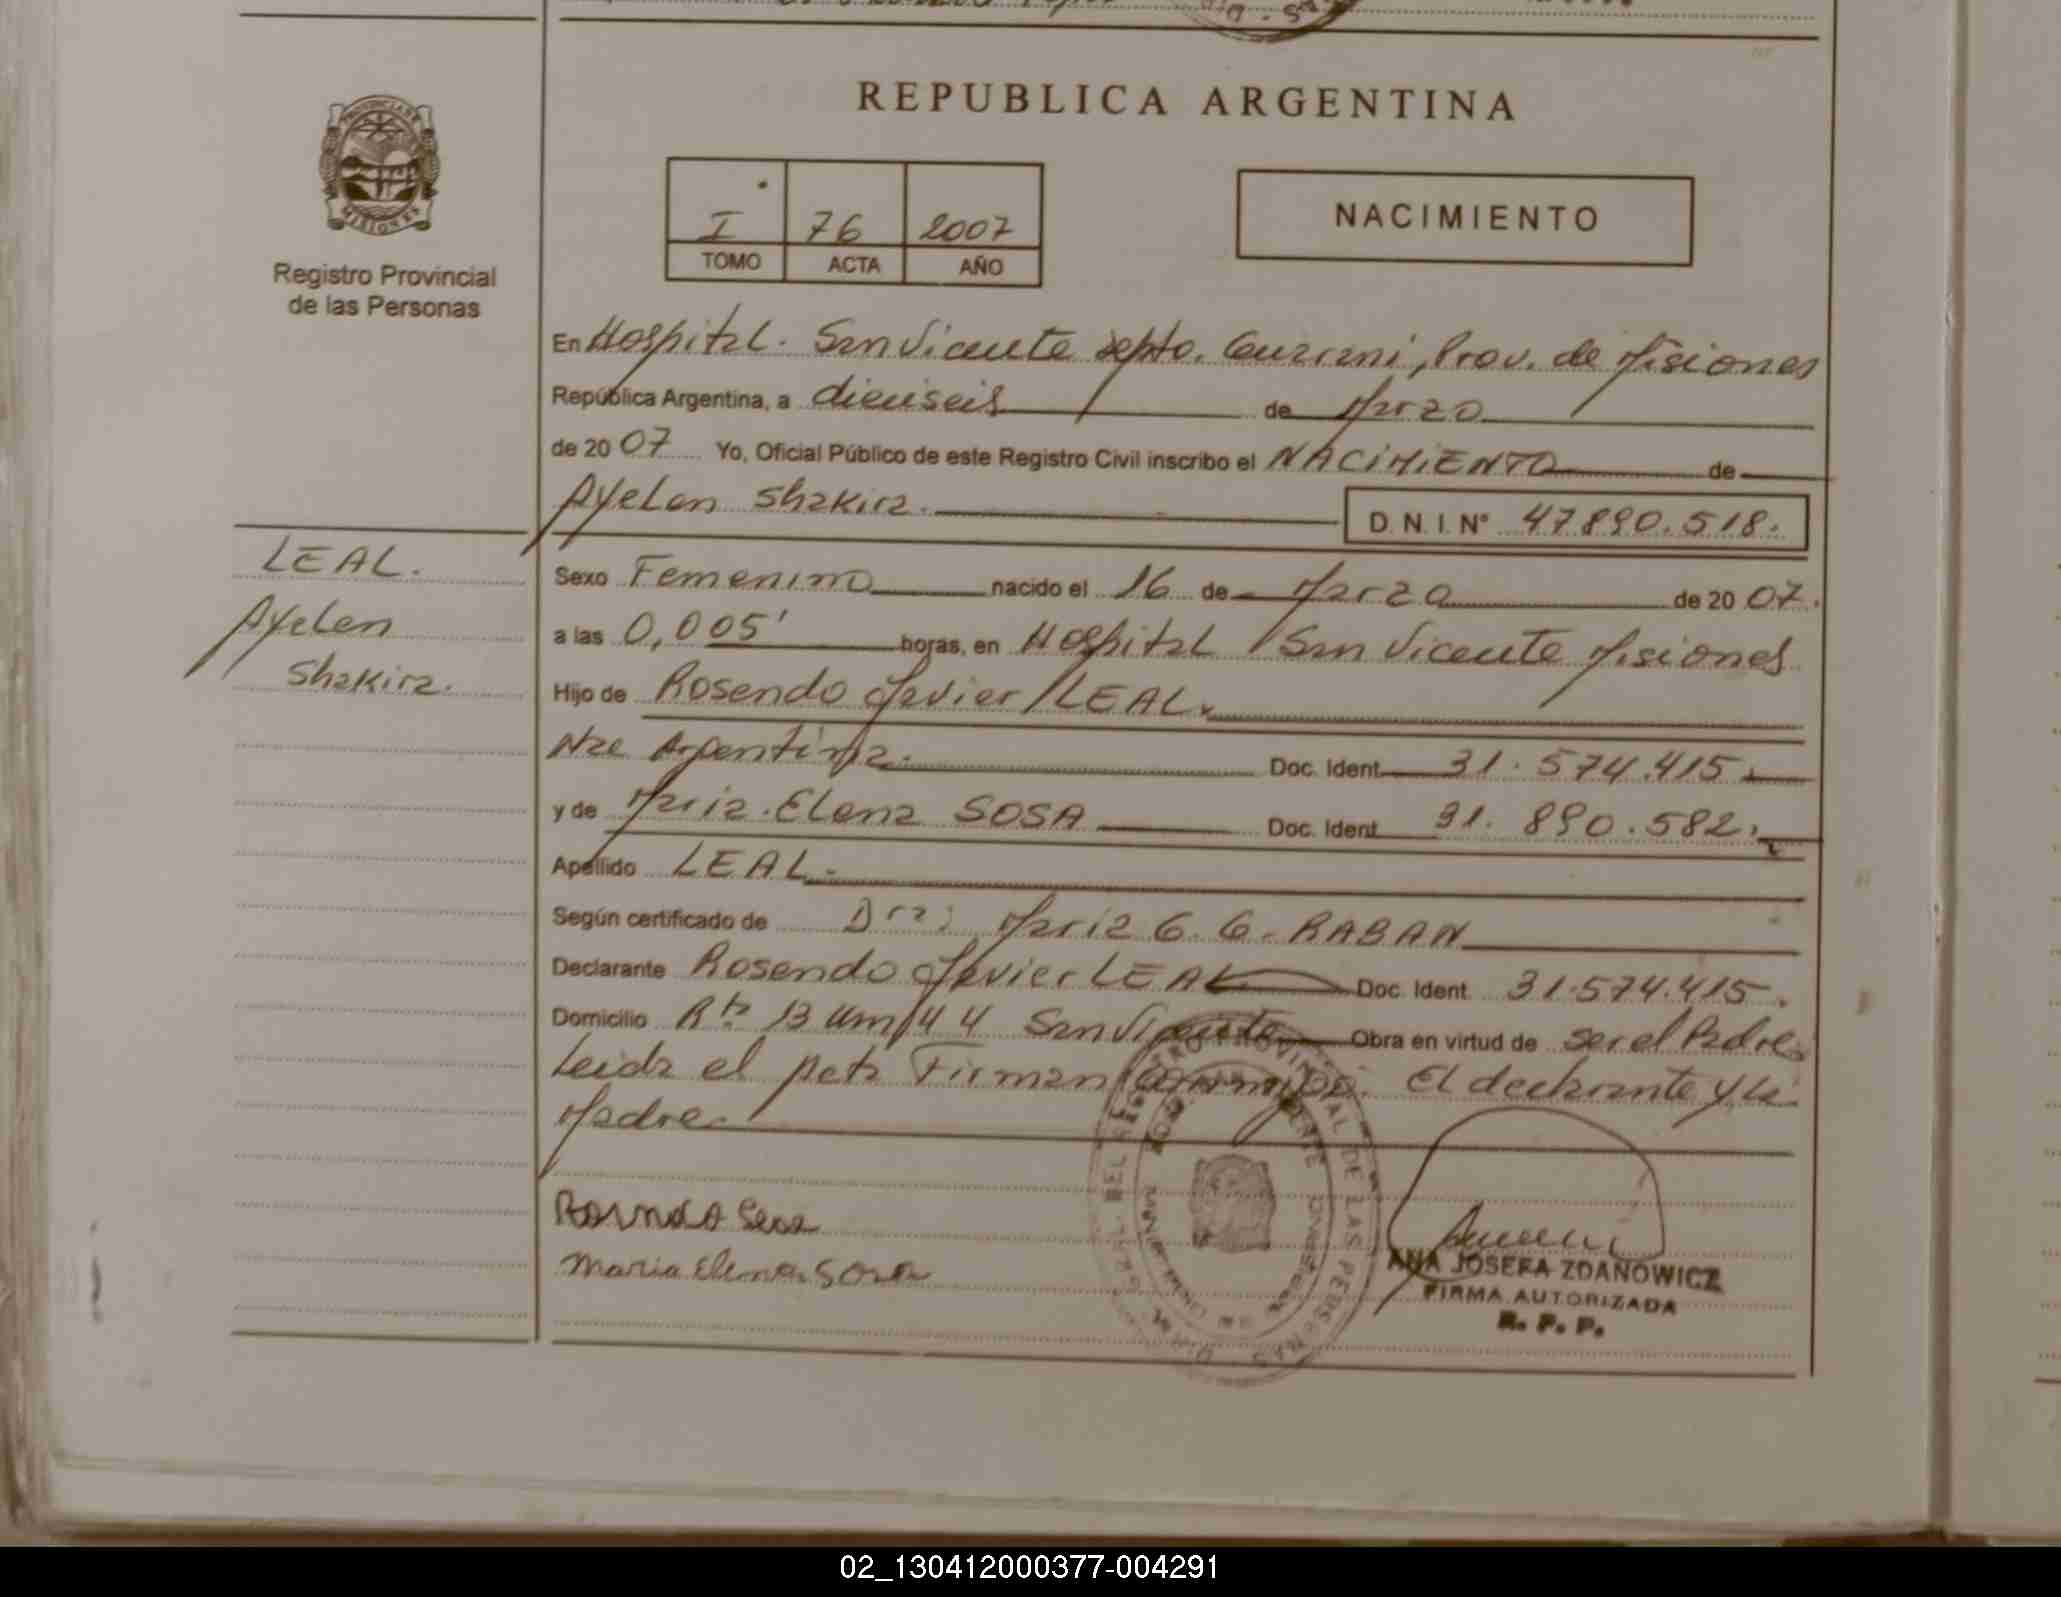 REPUBLICA ARGENTINA
PROVINCIA DE
MISIONES
Registro Provincial
de las Personas
I 76 2007
TOMO ACTA AÑO
NACIMIENTO
En Hospital. San Vicente Depto. Guarani, Prov. de Misiones
República Argentina, a dieciseis de Marzo
de 2007 Yo, Oficial Público de este Registro Civil inscribo el NACIMIENTO de
Ayelen Shakira. D. N. I. Nº 47.890.518.
LEAL.
Ayelen
Shakira.
Sexo Femenino nacido el 16 de Marzo de 2007.
a las 0,005' horas, en Hospital San Vicente Misiones
Hijo de Rosendo Javier LEAL.
Nac Argentina. Doc. Ident. 31.574.415.
y de Maria Elena SOSA Doc. Ident. 31.890.582.
Apellido LEAL.
Según certificado de Dra: Maria G. G. RABAN
Declarante Rosendo Javier LEAL Doc. Ident. 31.574.415.
Domicilio Rta 13 Km 44 San Vicente Obra en virtud de ser el Padre
Leida el Acta Firman conmigo. El declarante y la
Madre.
Maria Elena Sosa
REGISTRO PROVINCIAL DE LAS PERSONAS
ANA JOSEFA ZDANOWICZ
FIRMA AUTORIZADA
R. P. P.
02_130412000377-004291